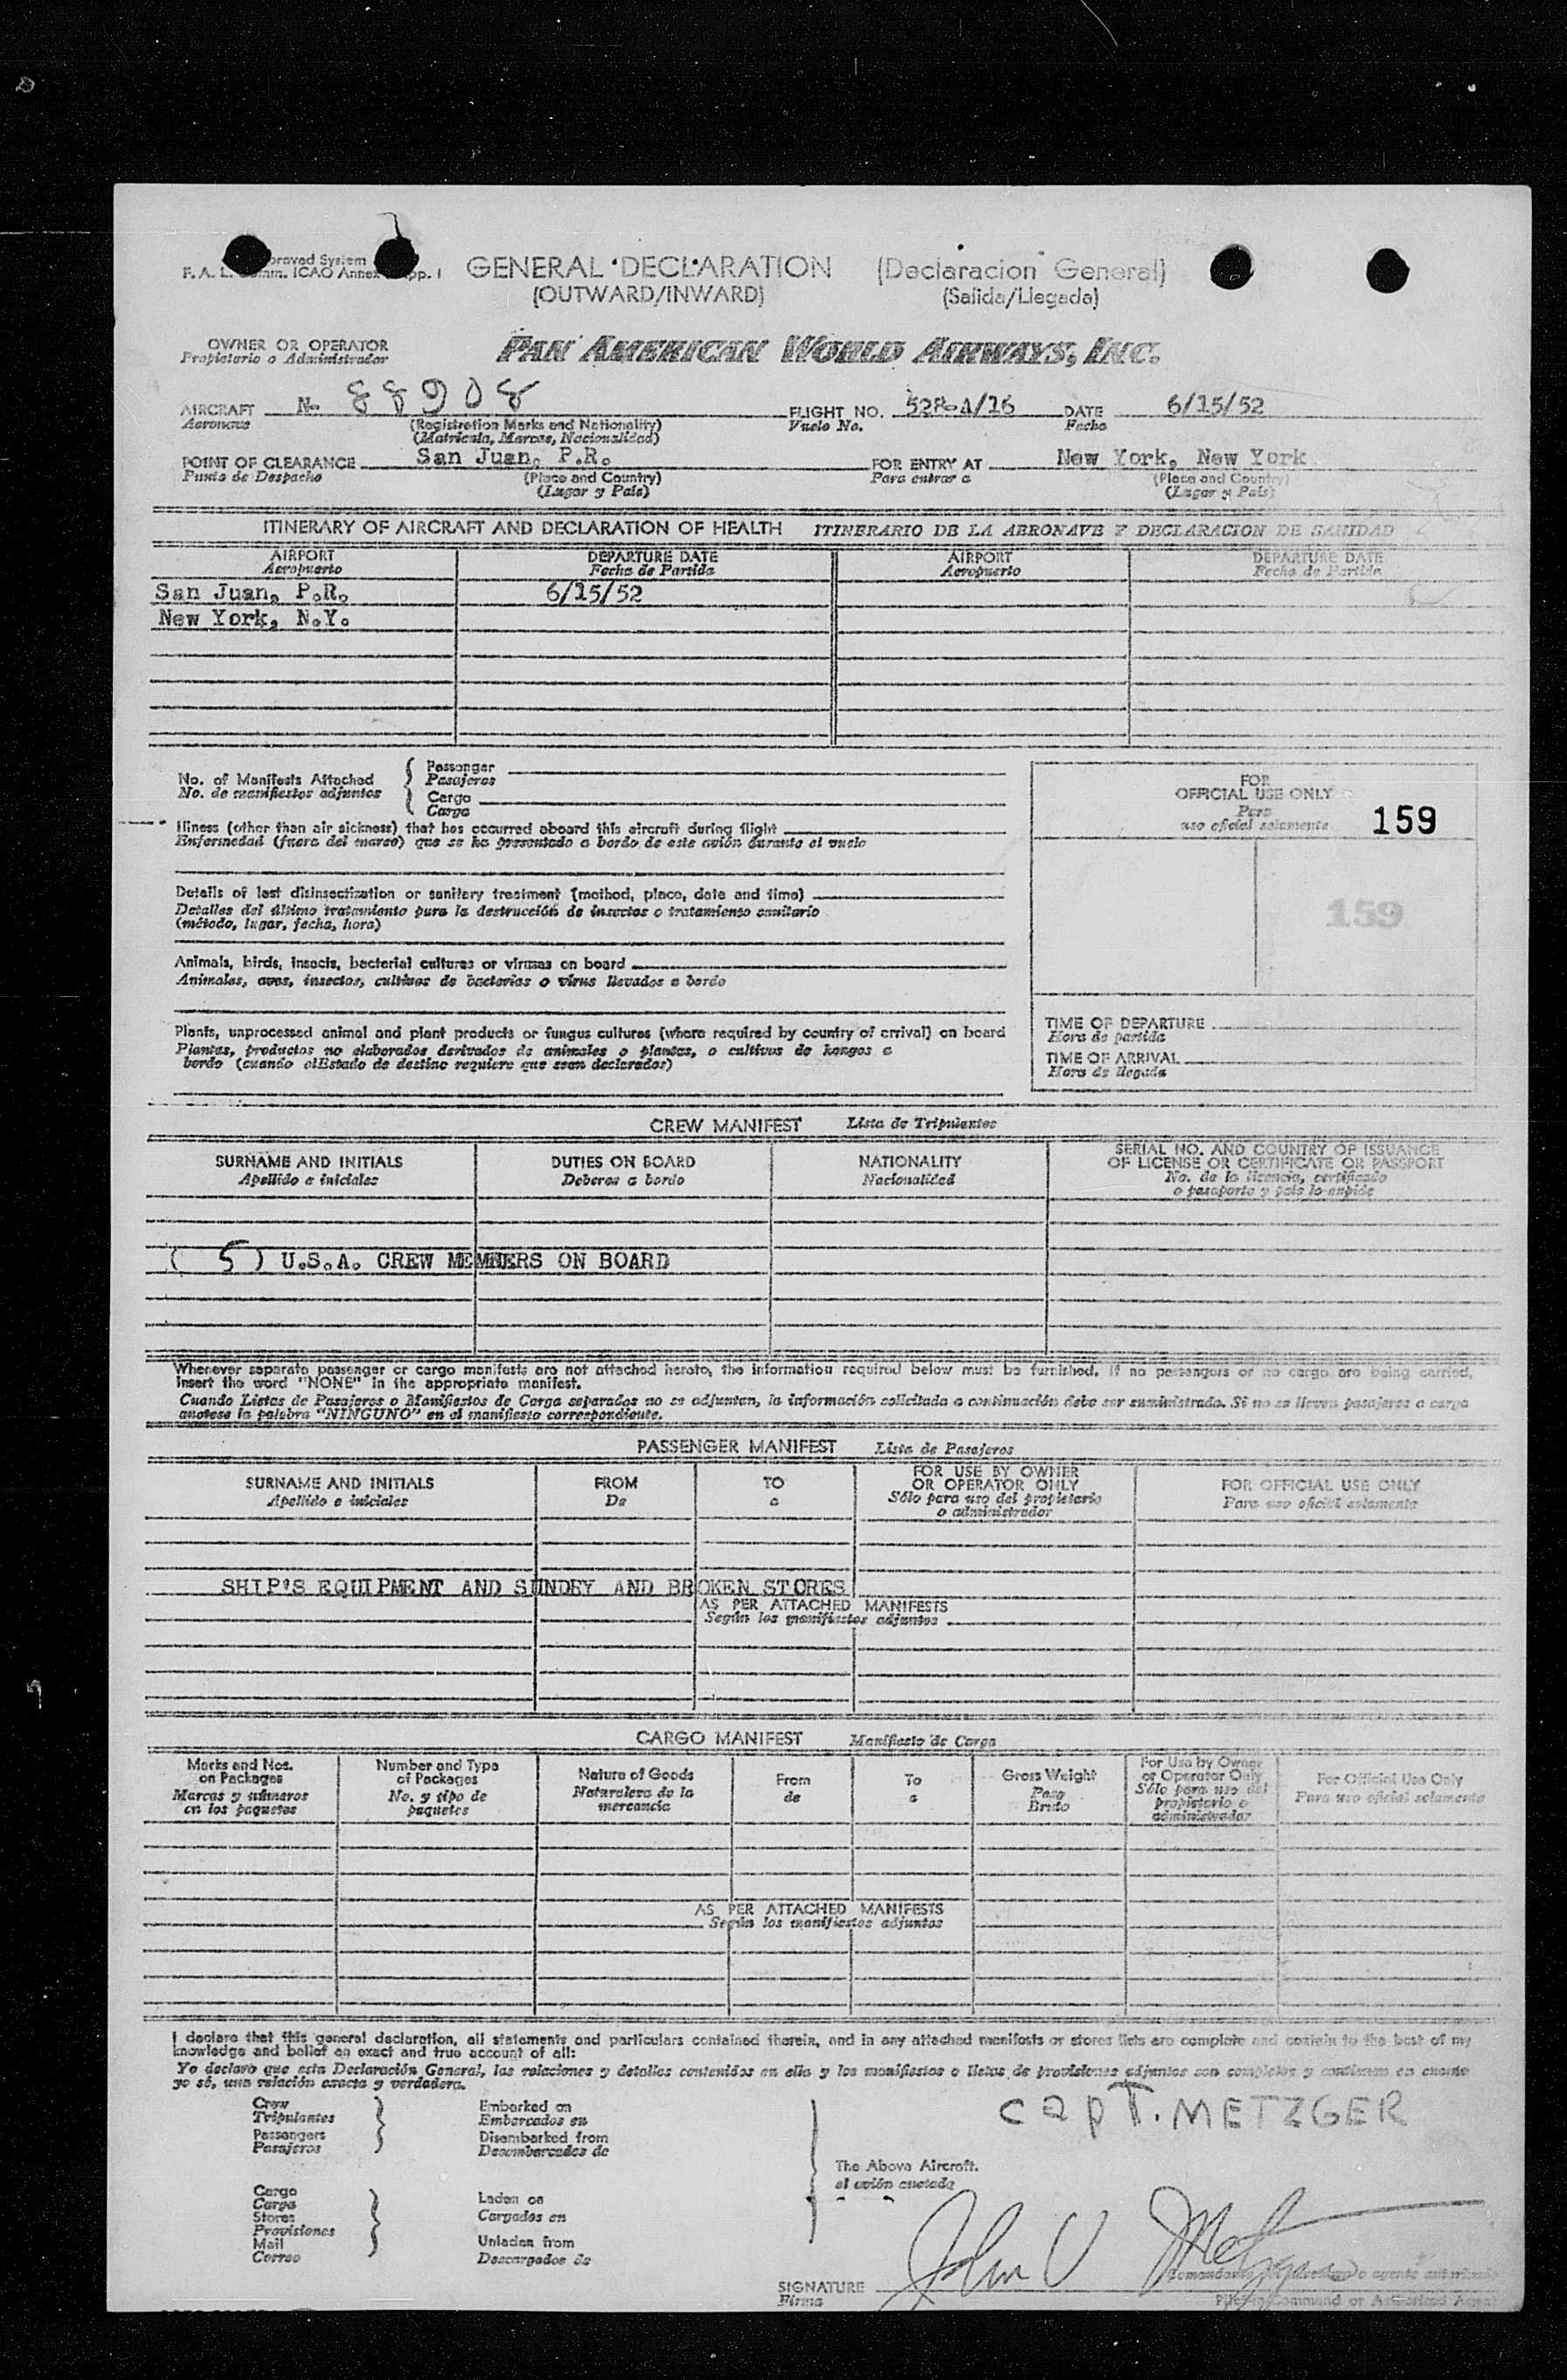 F. A. L. Comm. ICAO Annex
GENERAL DECLARATION (Declaracion General)
(OUTWARD/INWARD) (Salida/Llegada)
OWNER OR OPERATOR PAN AMERICAN WORLD AIRWAYS, INC.
Propietario o Administrador
AIRCRAFT No 88908 FLIGHT NO. DATE 6/15/52
Aeronave (Registration Marks and Nationality) Vuelo No. Fecha
(Matricula, Marcas, Nacionalidad)
POINT OF CLEARANCE San Juan, P.R. FOR ENTRY AT New York, New York
Punto de Despacho (Place and Country) Para entrar a (Place and Country)
(Lugar y País) (Lugar y País)
ITINERARY OF AIRCRAFT AND DECLARATION OF HEALTH ITINERARIO DE LA AERONAVE Y DECLARACION DE SANIDAD
AIRPORT DEPARTURE DATE AIRPORT DEPARTURE DATE
Aeropuerto Fecha de Partida Aeropuerto Fecha de Partida
San Juan, P.R. 6/15/52
New York, N.Y.
No. of Manifests Attached Passenger
No. de manifiestos adjuntos Pasajeros
Cargo
Carga
FOR
OFFICIAL USE ONLY
Para
uso oficial solamente 159
159
Illness (other than air sickness) that has occurred aboard this aircraft during flight
Enfermedad (fuera del mareo) que se ha presentado a bordo de este avión durante el vuelo
Details of last disinsectization or sanitary treatment (method, place, date and time)
Detalles del último tratamiento para la destrucción de insectos o tratamiento sanitario
(método, lugar, fecha, hora)
Animals, birds, insects, bacterial cultures or viruses on board
Animales, aves, insectos, cultivos de bacterias o virus llevados a bordo
Plants, unprocessed animal and plant products or fungus cultures (where required by country of arrival) on board
Plantas, productos no elaborados derivados de animales o plantas, o cultivos de hongos a
bordo (cuando elEstado de destino requiere que sean declarados)
TIME OF DEPARTURE
Hora de partida
TIME OF ARRIVAL
Hora de llegada
CREW MANIFEST Lista de Tripulantes
SURNAME AND INITIALS DUTIES ON BOARD NATIONALITY SERIAL NO. AND COUNTRY OF ISSUANCE
Apellido e iniciales Deberes a bordo Nacionalidad OF LICENSE OR CERTIFICATE OR PASSPORT
No. de la licencia, certificado
o pasaporte y país lo expide
( 5 ) U.S.A. CREW MEMBERS ON BOARD
Whenever separate passenger or cargo manifests are not attached hereto, the information required below must be furnished. If no passengers or no cargo are being carried,
insert the word "NONE" in the appropriate manifest.
Cuando Listas de Pasajeros o Manifiestos de Carga separados no se adjuntan, la información solicitada a continuación debe ser suministrada. Si no se llevan pasajeros o carga
anotese la palabra "NINGUNO" en el manifiesto correspondiente.
PASSENGER MANIFEST Lista de Pasajeros
SURNAME AND INITIALS FROM TO FOR USE BY OWNER FOR OFFICIAL USE ONLY
Apellido e iniciales De a OR OPERATOR ONLY Para uso oficial solamente
Sólo para uso del propietario
o administrador
SHIP'S EQUIPMENT AND SUNDRY AND BROKEN STORES
AS PER ATTACHED MANIFESTS
Según los manifiestos adjuntos
CARGO MANIFEST Manifiesto de Carga
Marks and Nos. Number and Type Nature of Goods From To Gross Weight For Use by Owner For Official Use Only
on Packages of Packages Naturaleza de la de a Peso or Operator Only Para uso oficial solamente
Marcas y números No. y tipo de mercancía Bruto Sólo para uso del
en los paquetes paquetes propietario o
administrador
AS PER ATTACHED MANIFESTS
Según los manifiestos adjuntos
I declare that this general declaration, all statements and particulars contained therein, and in any attached manifests or stores lists are complete and contain to the best of my
knowledge and belief an exact and true account of all:
Yo declaro que esta Declaración General, las relaciones y detalles contenidos en ella y los manifiestos o listas de provisiones adjuntos son completos y contienen en cuanto
yo sé, una relación exacta y verdadera.
Crew Embarked on CAPT. METZGER
Tripulantes Embarcados en
Passengers Disembarked from
Pasajeros Desembarcados de
The Above Aircraft.
el avión
Cargo Laden on
Carga Cargados en
Stores
Provisiones
Mail Unladen from
Correo Descargados de
SIGNATURE John V Metzger
Firma